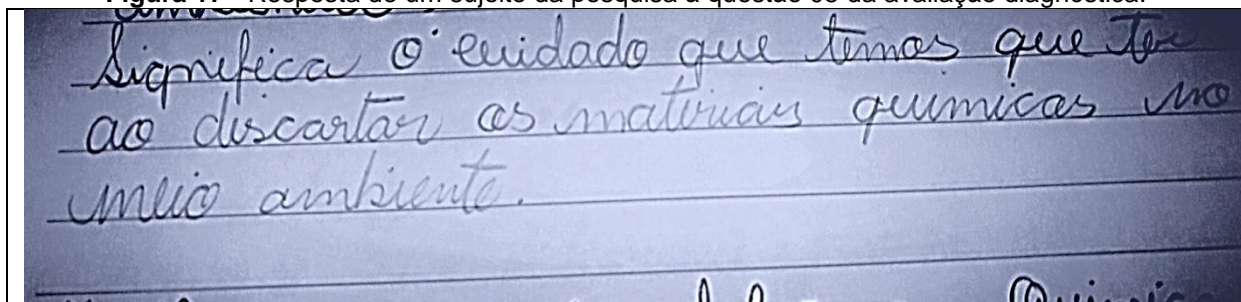 Significa o cuidado que temos que ter
ao discartar as materiais quimicas no
meio ambiente.